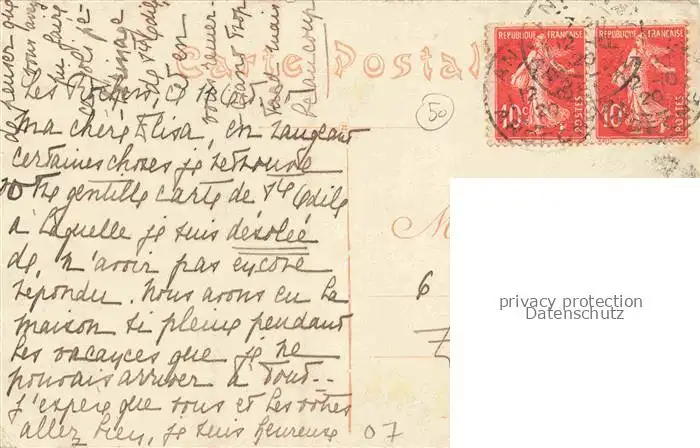 Carte Postale
RÉPUBLIQUE FRANÇAISE
RÉPUBLIQUE FRANÇAISE
10 c
POSTES
10 c
POSTES
50
Les Rochers, ce 18
Ma chère Elisa, en rangeant
certaines choses je retrouve
votre gentille carte de Ste Odile
à laquelle je suis désolée
de n'avoir pas encore
répondu. Nous avons eu la
maison si pleine pendant
les vacances que je ne
pouvais arriver à tout...
J'espère que vous et les vôtres
allez bien, je suis heureuse
de penser que
vous avez
pu faire
de Ste Odile
trop
mais
beaucoup
M
6
07
privacy protection
Datenschutz